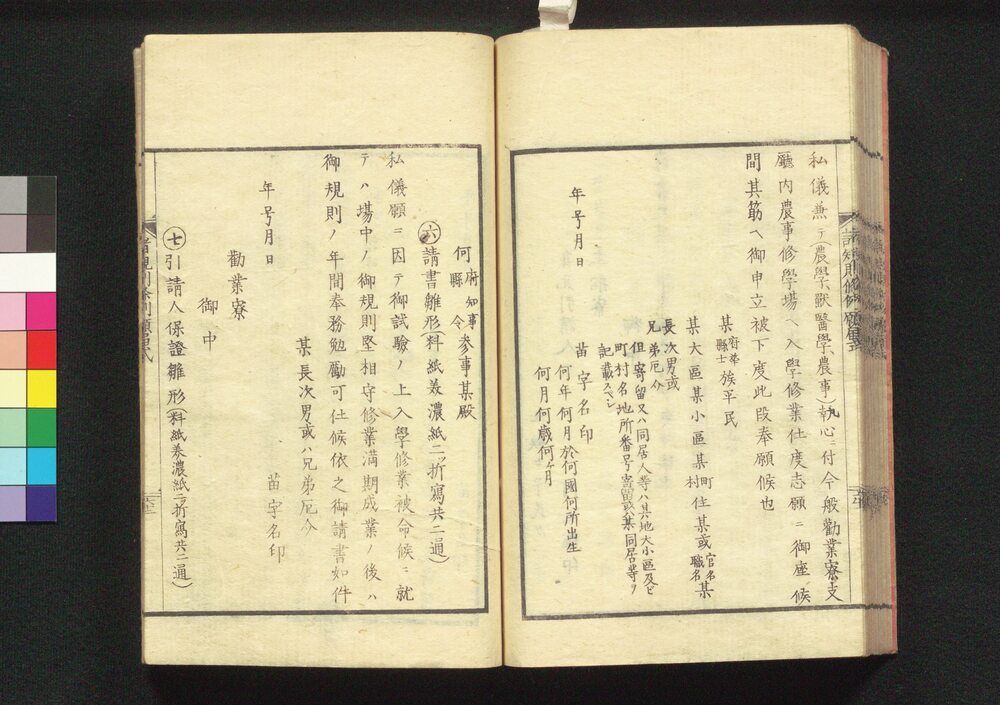 私儀兼テ(農學、獸醫學、農事)執心ニ付今般勸業寮支
廳内農事修學場ヘ入學修業仕度志願ニ御座候
間其筋ヘ御申立被下度此段奉願候也
某府華族平民
縣士
某大區某小區某町村住某或官名某
職名
長次男或
兄弟厄介
但寄留又ハ同居人等ハ其地大小區及ビ
町村名地所番号寄留或某同居等ヲ
記載スベシ
年号月日
苗字名印
何年何月於何國何所出生
何月何歳何ヶ月
何府知事參事某殿
縣令
六請書雛形(料紙美濃紙二ツ折寫共二通)
私儀願ニ因テ御試驗ノ上入學修業被命候ニ就
テハ場中ノ御規則堅相守修業満期成業ノ後ハ
御規則ノ年間奉務勉勵可仕候依之御請書如件
年号月日
某長次男或ハ兄弟厄介
苗字名印
勸業寮
御中
七引請人保證雛形(料紙美濃紙二ツ折寫共二通)